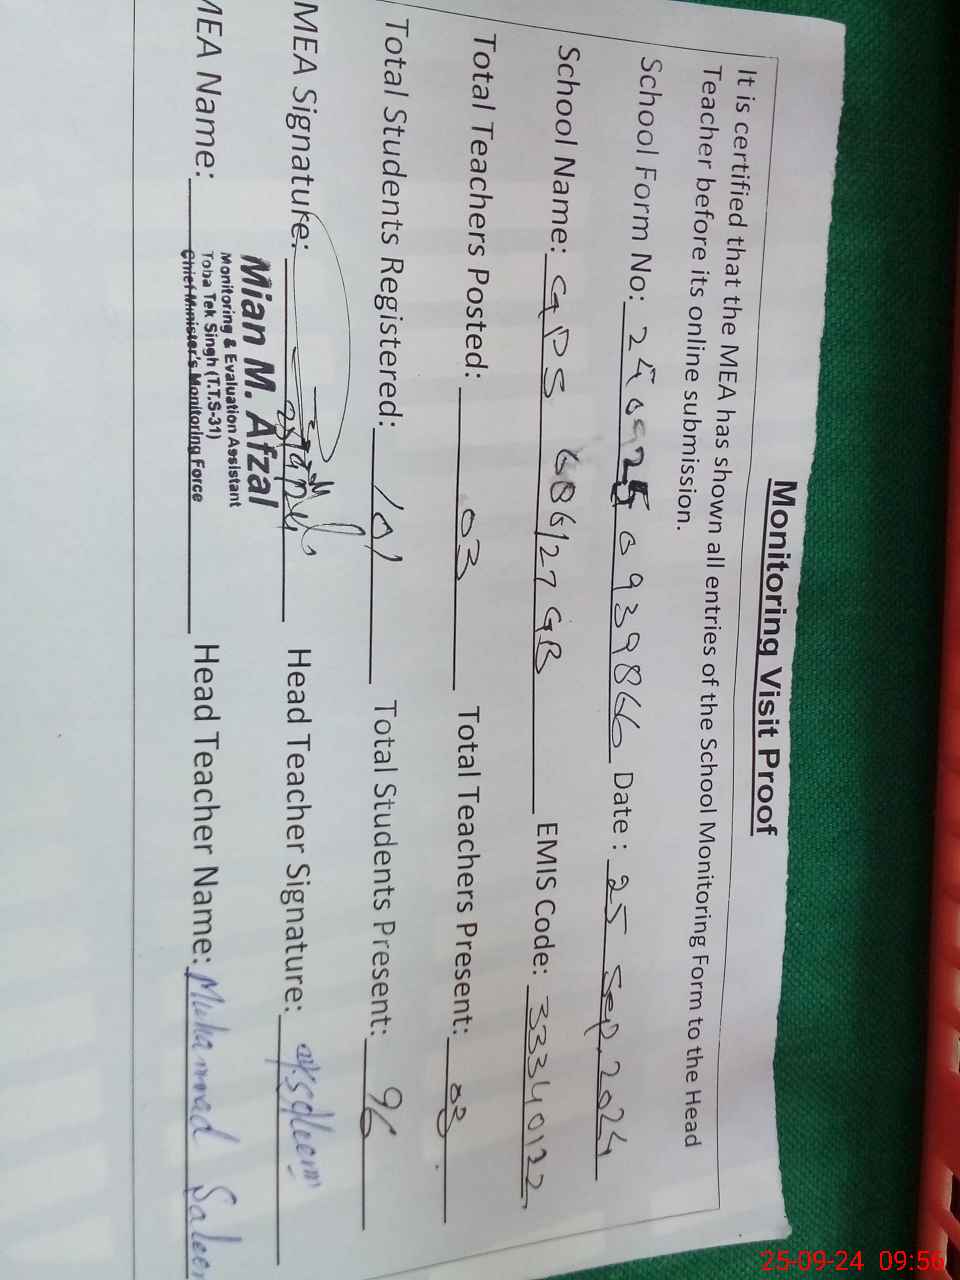 Monitoring Visit Proof
It is certified that the MEA has shown all entries of the School Monitoring Form to the Head
Teacher before its online submission.
School Form No: 240925 0939866 Date : 25 Sep, 2024
School Name: GPS 686/27 GB EMIS Code: 33340122
Total Teachers Posted: 03 Total Teachers Present: 03.
Total Students Registered: 101 Total Students Present: 96
MEA Signature: Head Teacher Signature: M.Saleem
Mian M. Afzal
Monitoring & Evaluation Assistant
Toba Tek Singh (T.T.S-31)
Chief Minister's Monitoring Force
MEA Name: Head Teacher Name: Muhammad Saleem
25-09-24 09:56